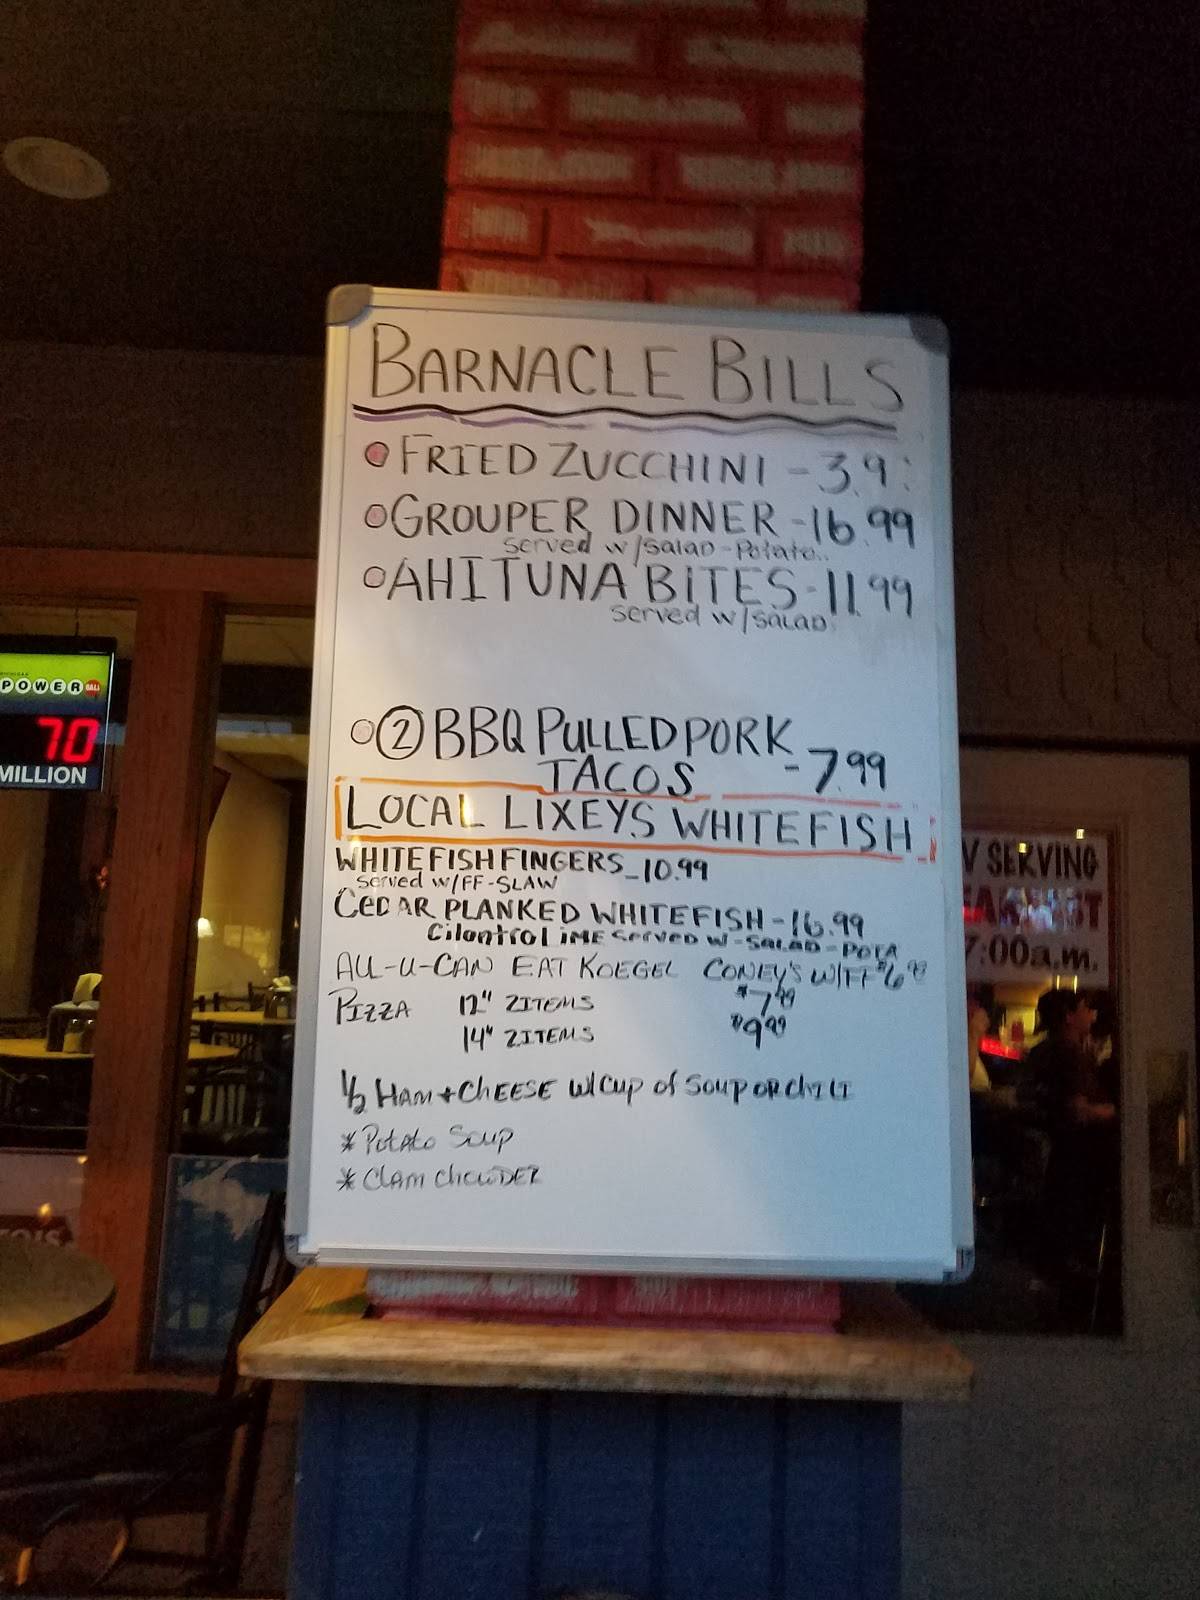 BARNACLE BILLS
FRIED ZUCCHINI - 3.9
GROUPER DINNER - 16.99
served w/salad-Potato..
AHI TUNA BITES - 11.99
served w/SALAD
② BBQ PULLED PORK
TACOS - 7.99
LOCAL LIXEYS WHITEFISH
WHITEFISH FINGERS - 10.99
served w/FF-SLAW
CEDAR PLANKED WHITEFISH - 16.99
CilantroLime served w-salad-Pota
ALL-U-CAN EAT KOEGEL CONEY'S W/FF $6.99
PIZZA 12" 2 ITEMS $7.99
14" 2 ITEMS $9.99
1/2 HAM + CHEESE w/ Cup of Soup OR CHILI
* Potato Soup
* Clam Chowder
POWERBALL
70
MILLION
SERVING
7:00a.m.